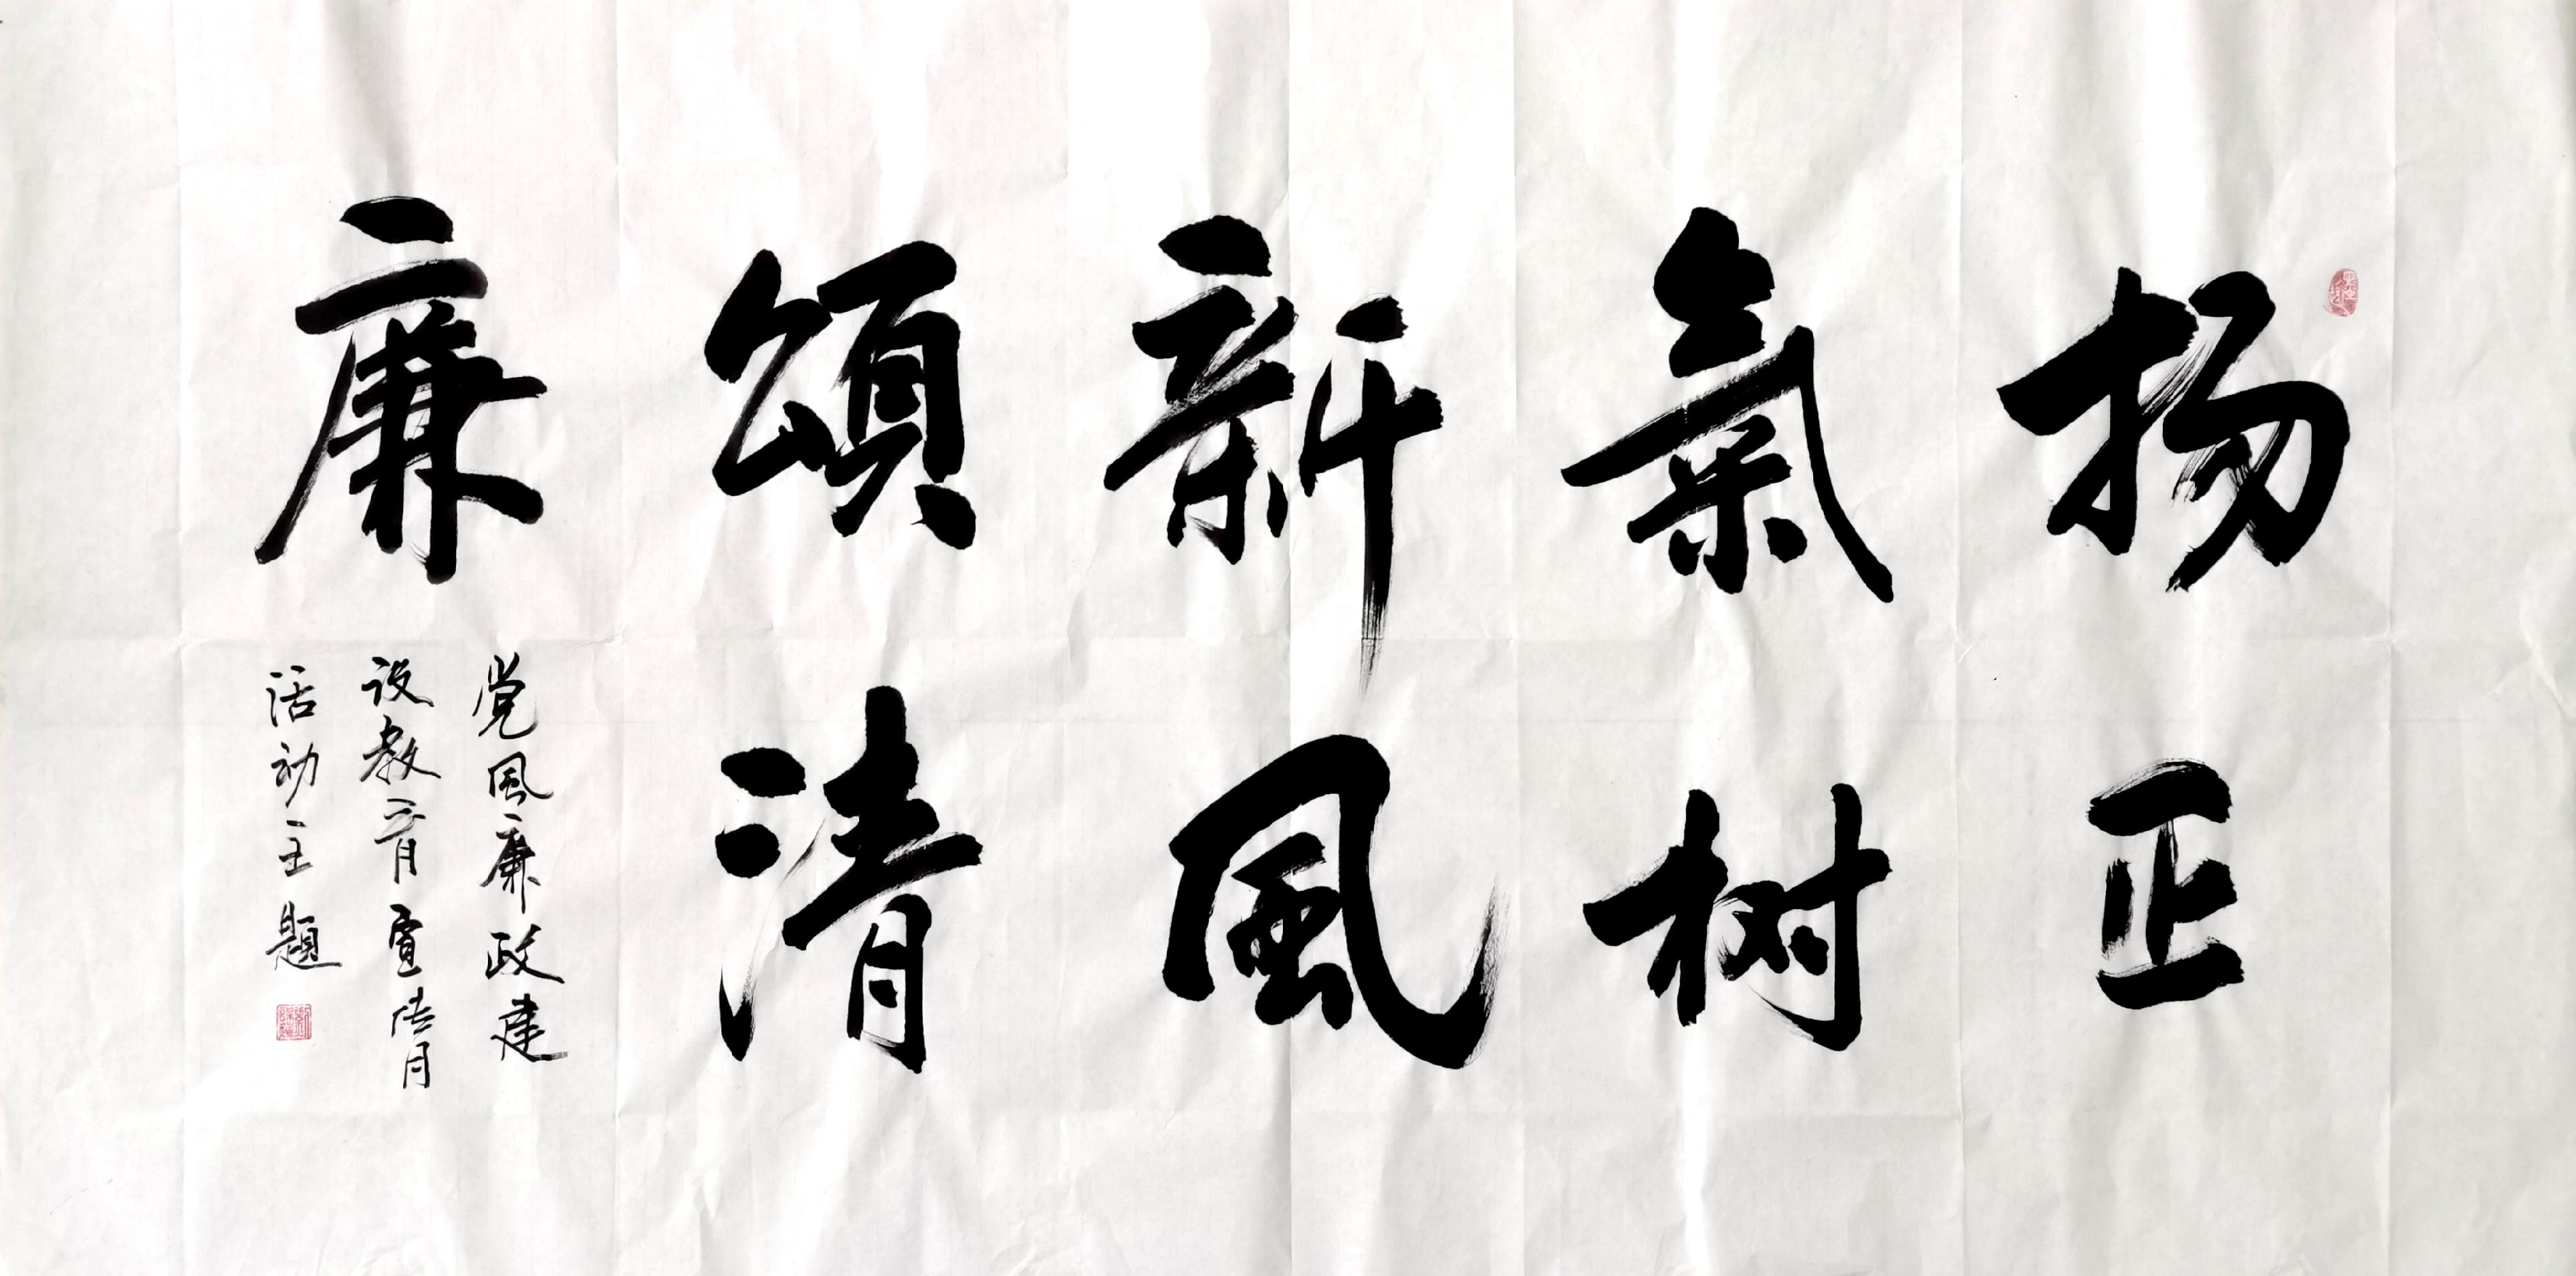 扬正
氣树
新風
頌清
廉
党風廉政建
设教育宣传月
活动主題